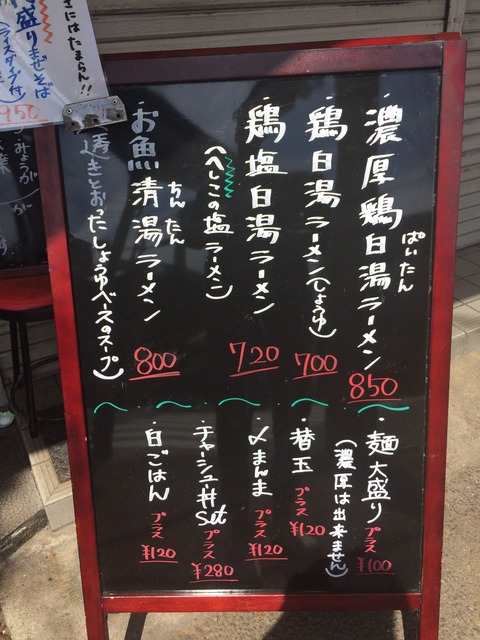 濃厚鶏白湯ラーメン
ぱいたん
850
鶏白湯ラーメン(しょうゆ)
700
鶏塩白湯ラーメン
720
(へしこの塩ラーメン)
お魚清湯ラーメン
ちんたん
800
(透きとおったしょうゆベースのスープ)
麺大盛り プラス ¥100
(濃厚は出来ません)
替玉 プラス ¥120
〆まんま プラス ¥120
チャーシュー丼set プラス ¥280
白ごはん プラス ¥120
きにはたまらん!!
盛りまぜそば
950
みょうが